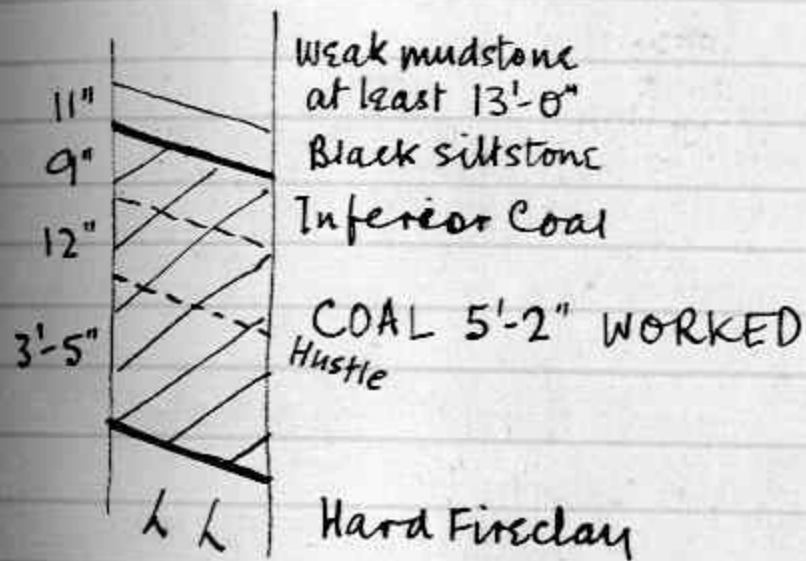 Weak mudstone
11" at least 13'-0"
9" Black siltstone
12" Inferior Coal
3'-5" COAL 5'-2" WORKED
Hustle
Hard Fireclay